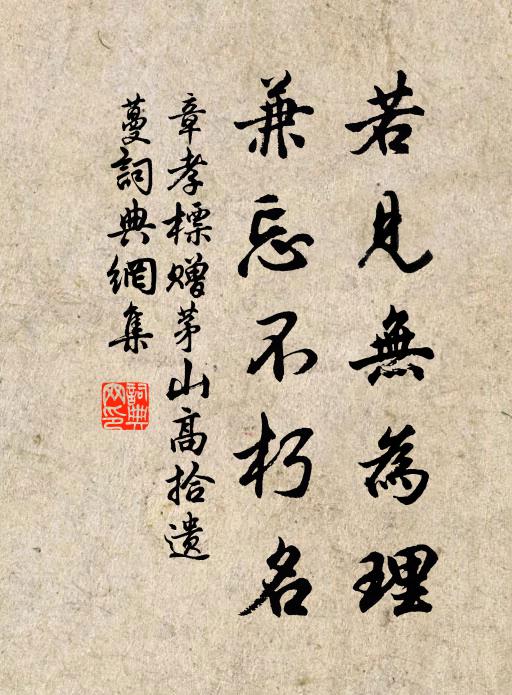 若見無為理
兼忘不朽名
章孝標贈茅山高拾遺
蔓詞典網集
詞典
网印